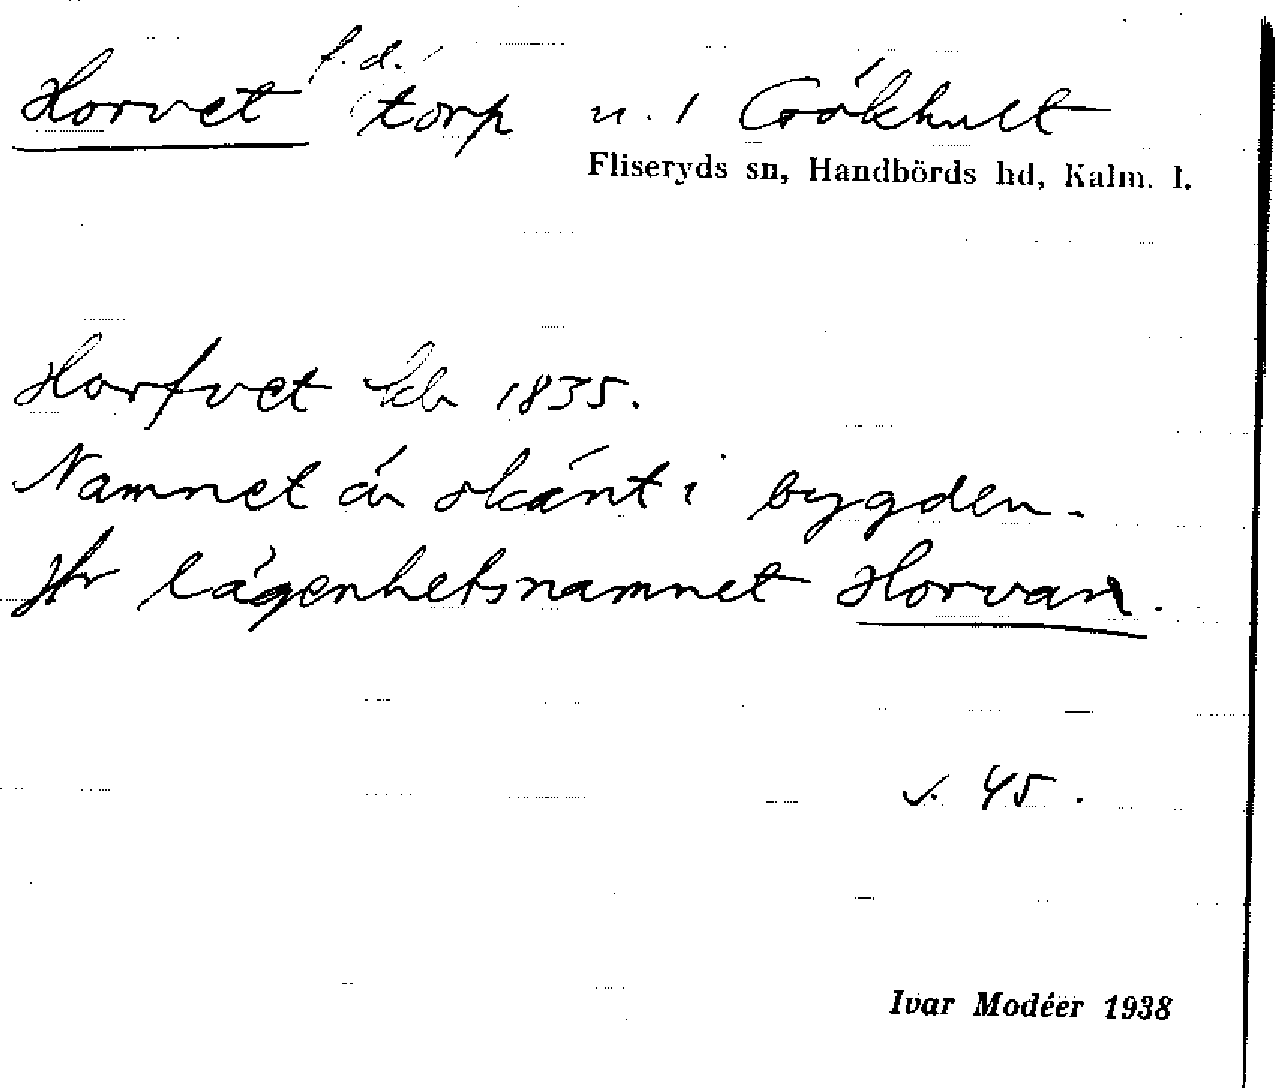 Horvet f.d. torp n. 1 Gökhult
Fliseryds sn, Handbörds hd, Kalm. l.
Horfvet kb 1835.
Namnet är okänt i bygden.
Jfr lägenhetsnamnet Horvan.
s. 45.
Ivar Modéer 1938